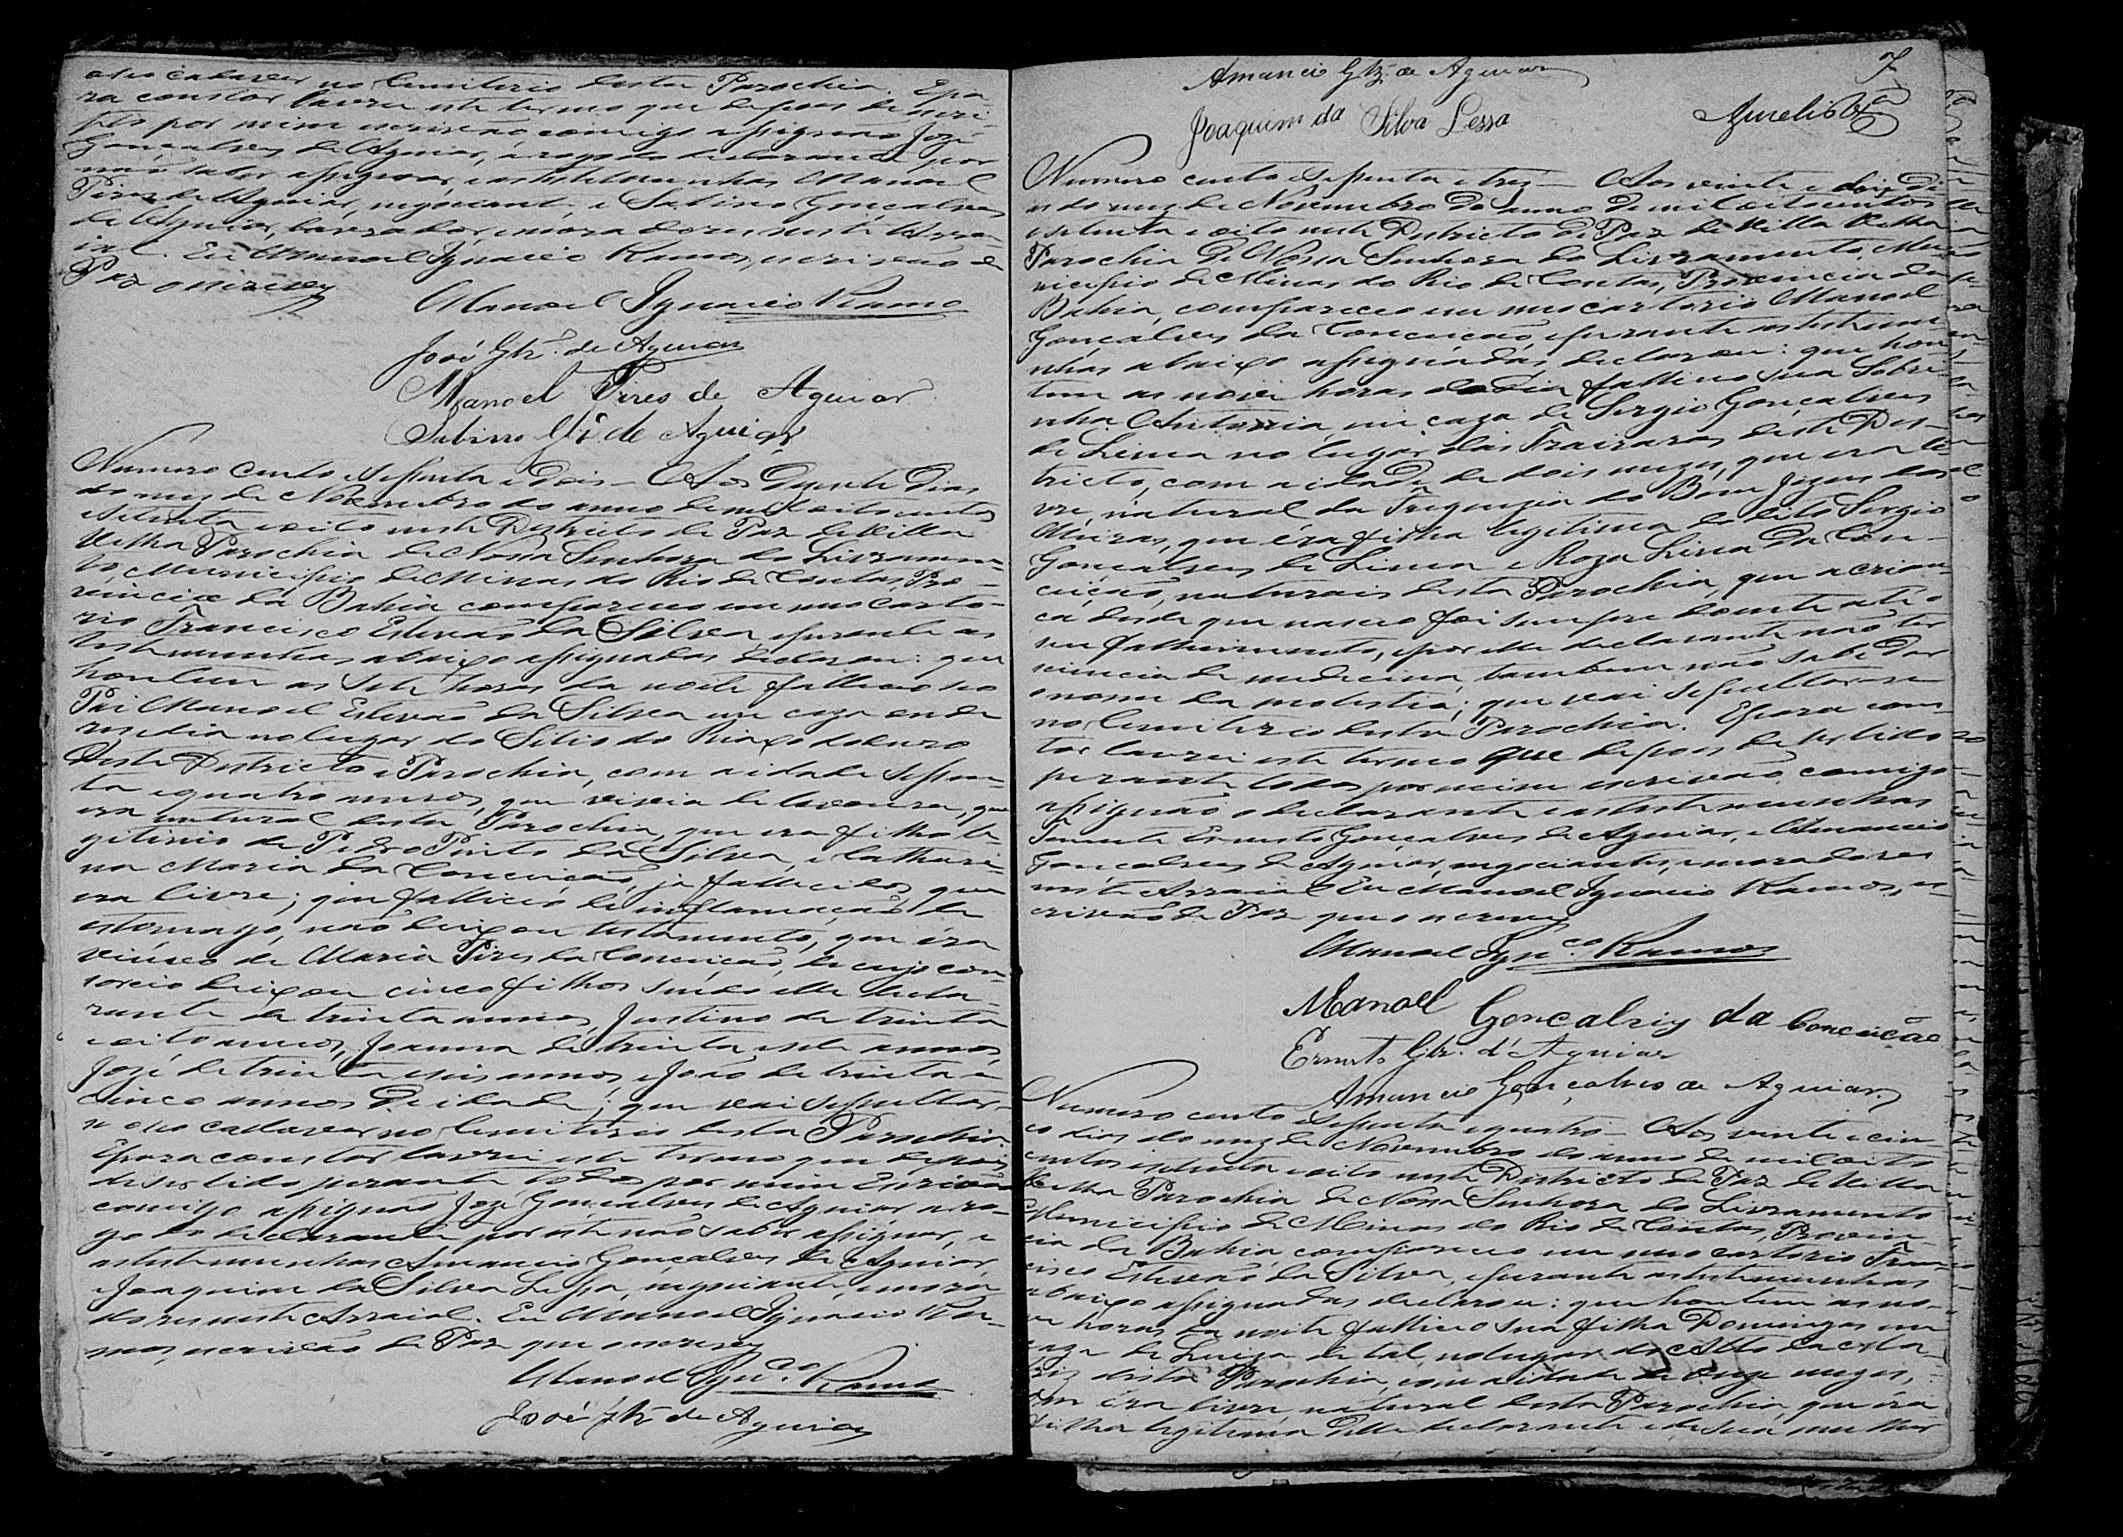 o seo cadaver no Cemiterio desta Parochia. E pa-
ra constar lavrei este termo que depois de
por mim escrivão comigo assignão José
Gonçalves de Aguiar, a rogo do declarante por
não saber assignar, e as testemunhas Manoel
Pires de Aguiar, negociante, e Sabino Gonçalves
de Aguiar, lavrador, moradores neste Arra-
ial. Eu Manoel Ignacio Ramos, escrivão de
Paz o escrevi
Manoel Ignacio Ramos
José Glz. de Aguiar
Manoel Pires de Aguiar
Sabino Glz. de Aguiar
Numero cento e sessenta e dois — Aos vinte dias
do mez de Novembro do anno de mil oito centos
e setenta e oito neste Districto de Paz de Villa
Velha Parochia de Nossa Senhora do Livramen-
to Municipio de Minas do Rio de Contas, Pro-
vincia da Bahia compareceo em meo carto-
rio Francisco Estevão da Silva e perante as
testemunhas abaixo assignadas declarou: que
hontem as sete horas da noite falleceo seo
Pai Manoel Estevão da Silva em caza onde
residia no lugar do Sitio do Riaxo
deste Districto e Parochia, com a idade sessen-
ta e quatro annos, que vivia de lavoura, que
era natural desta Parochia, que era filho le-
gitimo de Pedro Pinto da Silva, e Cathari-
na Maria da Conceição, já fallecidos, que
era livre; que falleceo de inflamação de
estomago, não deixou testamento, que éra
viuvo de Maria Pires da Conceição, de cujo con-
sorcio deixou cinco filhos sendo elle decla-
rante de trinta annos, Justino de trinta
e oito annos, Joanna de trinta e sete annos,
José de trinta e seis annos, e João de trinta e
cinco annos de idade; que vai sepultar-
se o seo cadaver no Cemiterio desta Parochia.
E para constar lavrei este termo que depois
de ser lido perante todos por mim Escrivão
comigo assignão José Gonçalves de Aguiar a ro-
go do declarante por este não saber assignar, e
as testemunhas Amancio Gonçalves de Aguiar,
e Joaquim da Silva Lessa, negociante, mora-
dores neste Arraial. Eu Manoel Ignacio Ra-
mos, escrivão de Paz que o escrevi
Manoel Ign.co Ramos
José Glz de Aguiar
7
Amancio Glz. de Aguiar
Joaquim da Silva Lessa
Numero cento e sessenta e tres — Aos vinte e dois di-
as do mez de Novembro do anno de mil oito centos
e setenta e oito neste Districto de Paz de Villa Velha
Parochia de Nossa Senhora do Livramento, Mu-
nicipio de Minas do Rio de Contas, Provincia da
Bahia, compareceo em meo cartorio Manoel
Gonçalves da Conceição, e perante as testemu-
nhas abaixo assignadas, declarou: que hon-
tem as nove horas do dia falleceo sua Sobri-
nha Antonia, em caza de Sergio Gonçalves
de Lima no lugar das Trairaras deste Des-
tricto, com a idade de dois mezes, que era li-
vre, natural da Freguezia do Bom Jezus dos
Meiras, que éra filha legitima do dito Sergio
Gonçalves de Lima e Roza Lima da Con-
ceição, naturais desta Parochia, que a crian-
ça desde que nasceo foi sempre doente até o
seu fallecimento, e por elle declarante não ter
sciencia de medicina, tambem não sabe dar
o nome da molestia; que vai sepultar-se
no Cemiterio desta Parochia. E para cons-
tar lavrei este termo que depois de ser lido
perante todos por mim escrivão, comigo
assignão o declarante e as testemunhas
Tenente Ernesto Gonçalves de Aguiar, e Amancio
Gonçalves de Aguiar, negociantes, e moradores
neste Arraial. Eu Manoel Ignacio Ramos, es-
crivão de Paz que o escrevi
Manoel Ign.co Ramos
Manoel Gonçalvis da Conceição
Ernesto Glz. d'Aguiar
Amancio Gonçalves de Aguiar
Numero cento e sessenta e quatro — Aos vinte e cin-
co dias do mez de Novembro do anno de mil oito
centos e setenta e oito neste Districto de Paz de Villa
Velha Parochia de Nossa Senhora do Livramento
Municipio de Minas do Rio de Contas, Provin-
cia da Bahia, compareceo em meo cartorio Fran-
cisco Estevão da Silva, e perante as testemunhas
abaixo assignadas declarou: que hontem as no-
ve horas da noite falleceo sua filha Domingas em
caza de Luiza de tal, no lugar do Alto da Ma-
triz desta Parochia, com a idade de onze mezes,
que éra livre natural desta Parochia, que éra
filha legitima delle declarante e de sua mulher